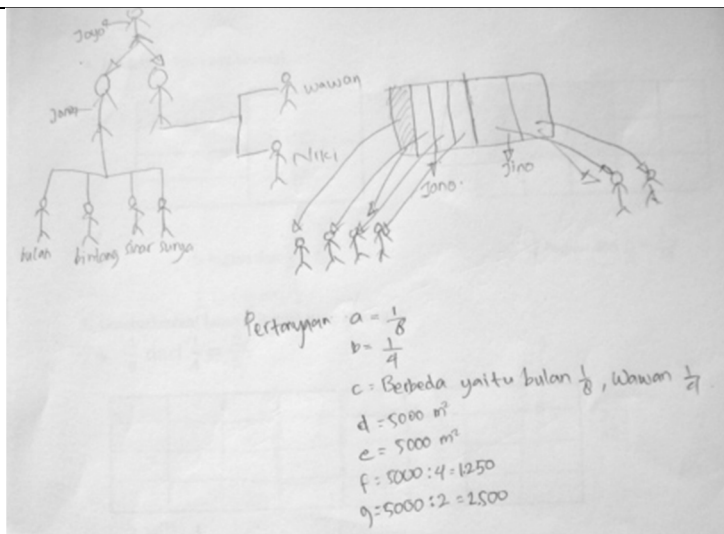 Joyo
wawan
Jono
Niki
Jono.
Jino
bulan bintang sinar surya
Pertanyaan a = 1/8
b = 1/4
c = Berbeda yaitu bulan 1/8, Wawan 1/4
d = 5000 m²
e = 5000 m²
f = 5000 : 4 = 1250
g = 5000 : 2 = 2.500